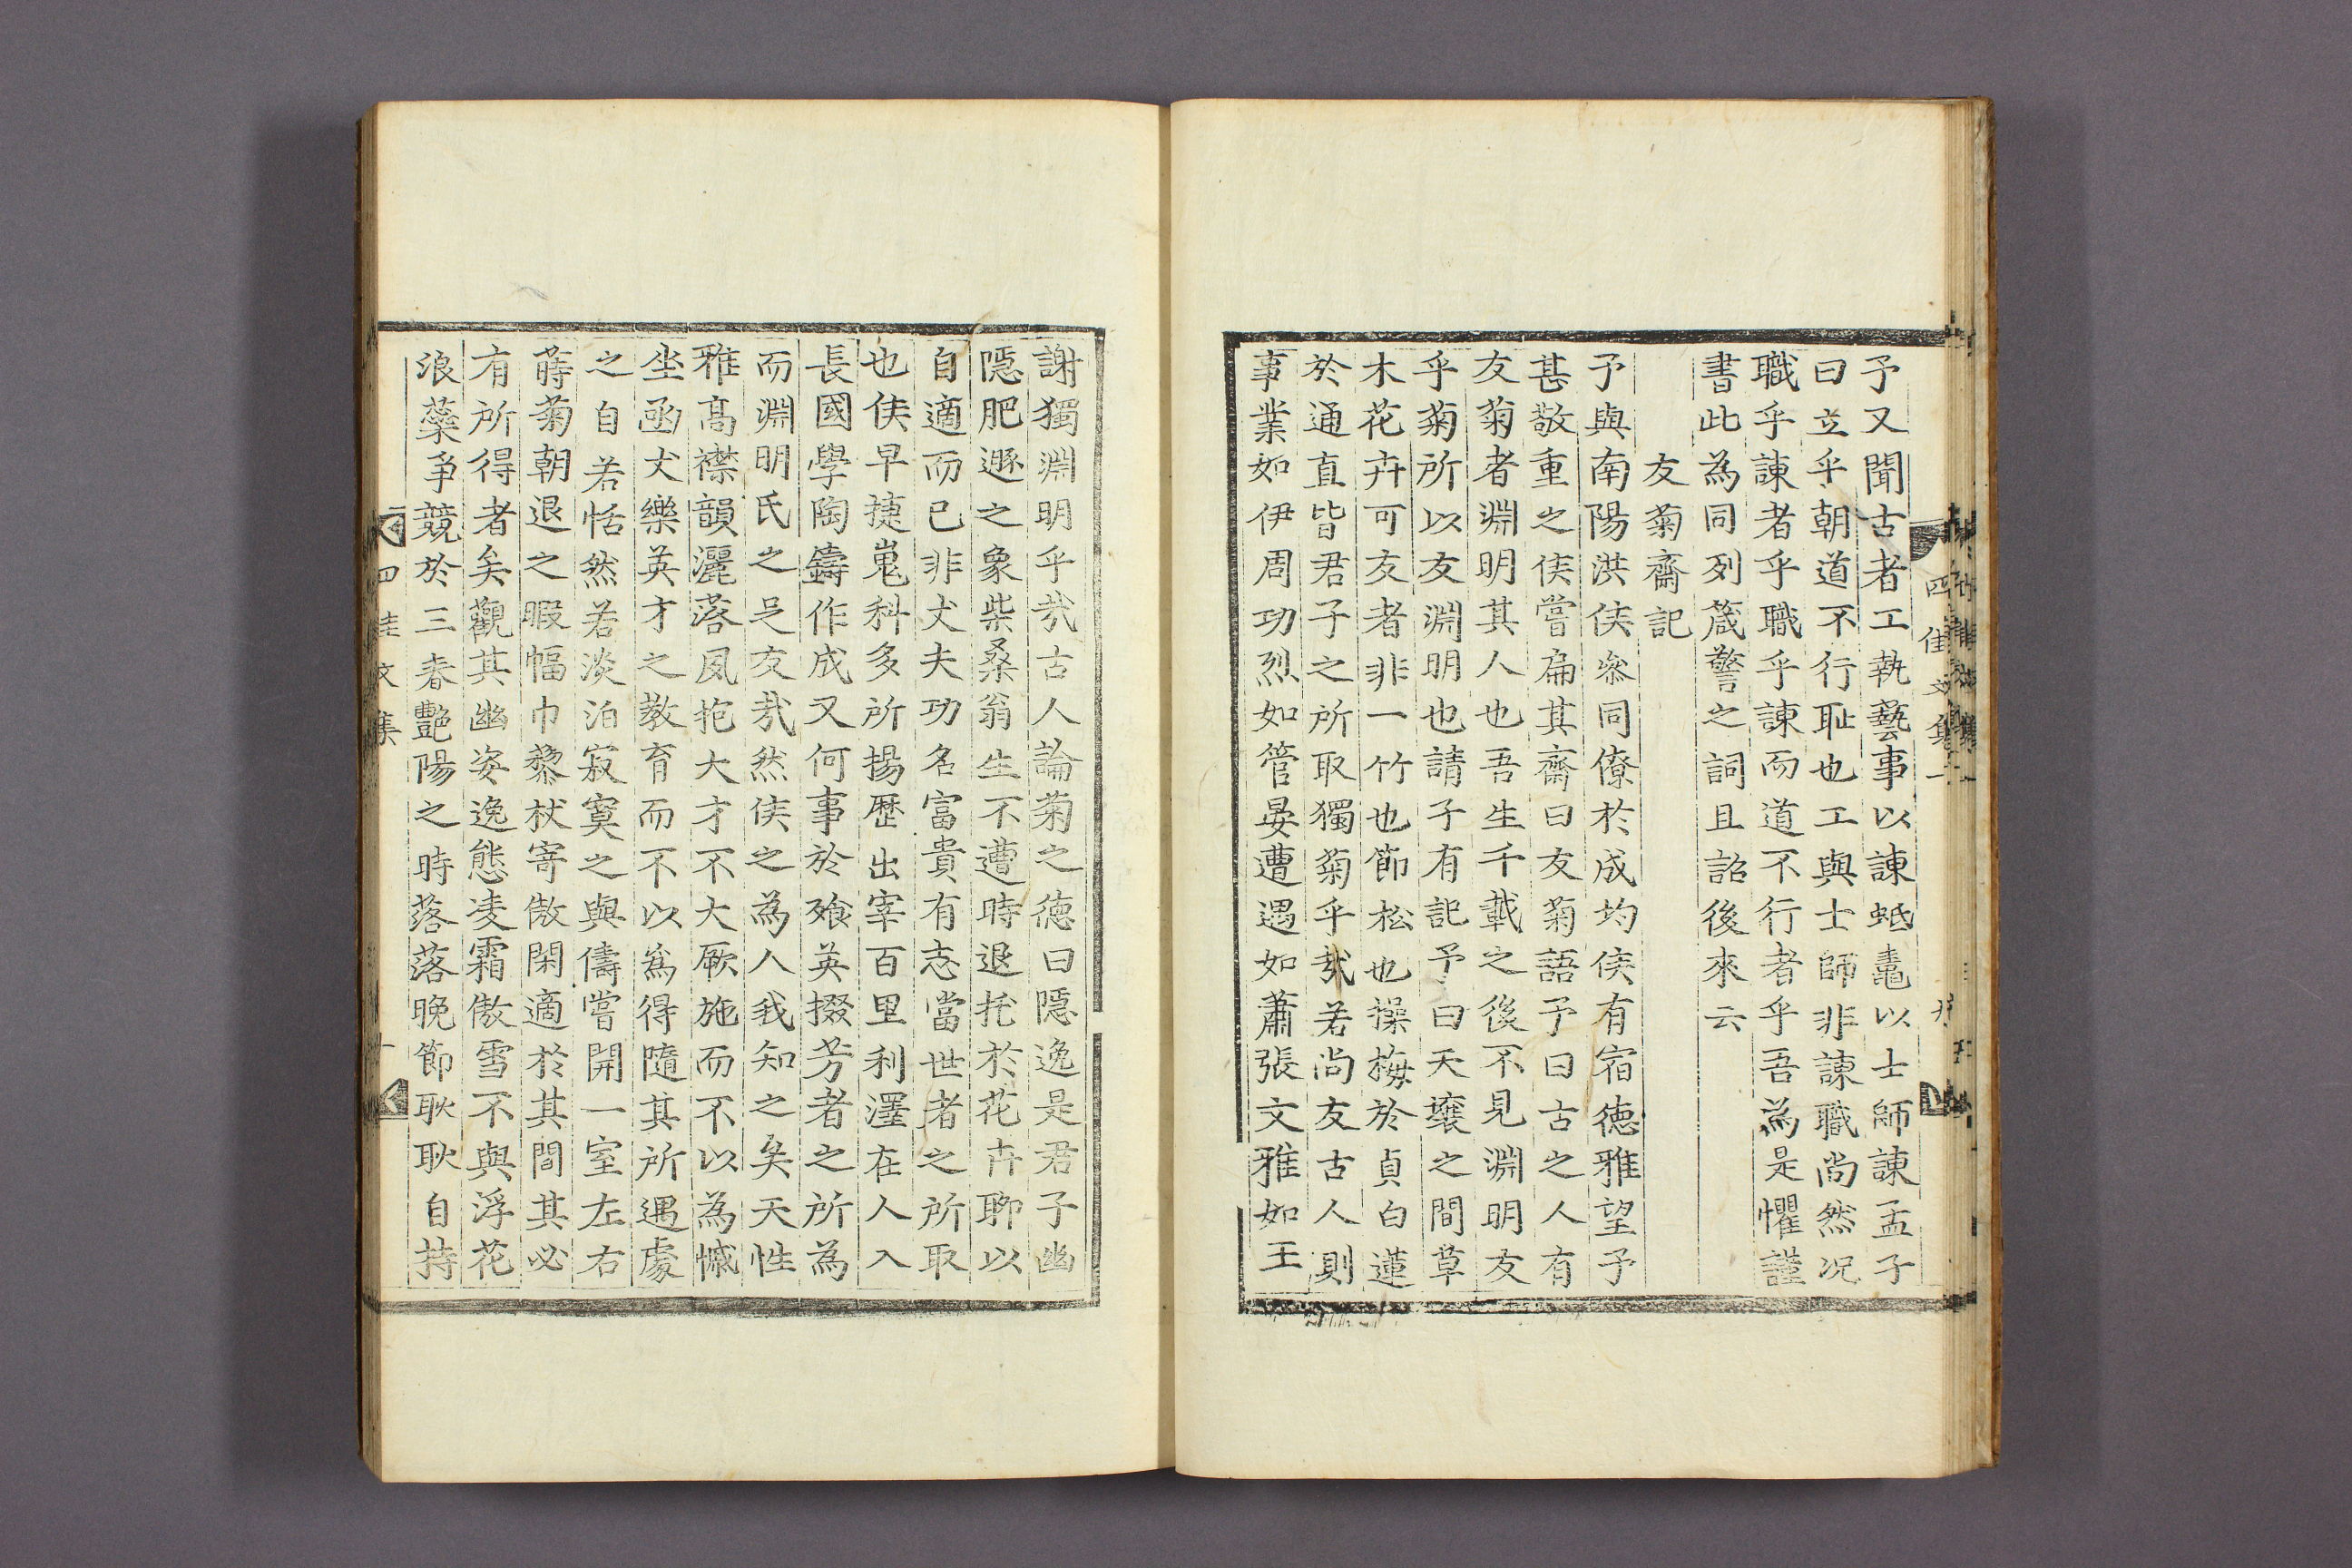 予又聞古者工執藝事以諫蚳鼃以士師諫孟子
曰立乎朝道不行恥也工與士師非諫職尚然况
職乎諫者乎職乎諫而道不行者乎吾為是懼謹
書此為同列箴警之詞且詒後來云
友菊齋記
予與南陽洪侯叅同僚於成均侯有宿德雅望予
甚敬重之侯嘗扁其齋曰友菊語予曰古之人有
友菊者淵明其人也吾生千載之後不見淵明友
乎菊所以友淵明也請子有記予曰天壤之間草
木花卉可友者非一竹也節松也操梅於貞白蓮
於通直皆君子之所取獨菊乎㢤若尚友古人則
事業如伊周功烈如管晏遭遇如蕭張文雅如王
謝獨淵明乎㢤古人論菊之德曰隱逸是君子幽
隱肥遯之象柴桑翁生不遭時退托於花卉聊以
自適而已非丈夫功名富貴有志當世者之所取
也侯早捷嵬科多所揚歷出宰百里利澤在人入
長國學陶鑄作成又何事於飧英掇芳者之所為
而淵明氏之足友㢤然侯之為人我知之矣天性
雅髙襟韻灑落夙抱大才不大厥施而不以為慽
坐函丈樂英才之教育而不以爲得隨其所遇處
之自若恬然若淡泊寂寞之與儔嘗開一室左右
蒔菊朝退之暇幅巾藜杖寄傲閑適於其間其必
有所得者矣觀其幽姿逸態凌霜傲雪不與浮花
浪蘂争競於三春艷陽之時落落晚節耿耿自持
四佳文集